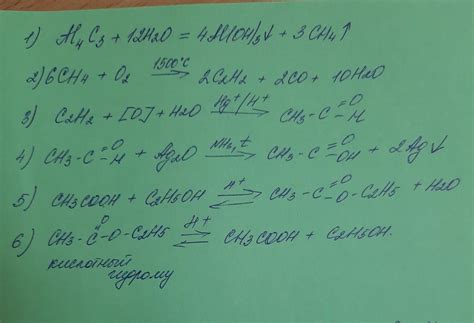 1) Al₄C₃ + 12H₂O = 4Al(OH)₃↓ + 3CH₄↑
2) 6CH₄ + O₂ 1500°C → 2C₂H₂ + 2CO + 10H₂O
3) C₂H₂ + [O] + H₂O Hg⁺/H⁺ → CH₃-C(=O)-H
4) CH₃-C(=O)-H + Ag₂O NH₃, t → CH₃-C(=O)-OH + 2Ag↓
5) CH₃COOH + C₂H₅OH H⁺ ⇄ CH₃-C(=O)-O-C₂H₅ + H₂O
6) CH₃-C(=O)-O-C₂H₅ H⁺ ⇄ CH₃COOH + C₂H₅OH.
кислотный
гидролиз